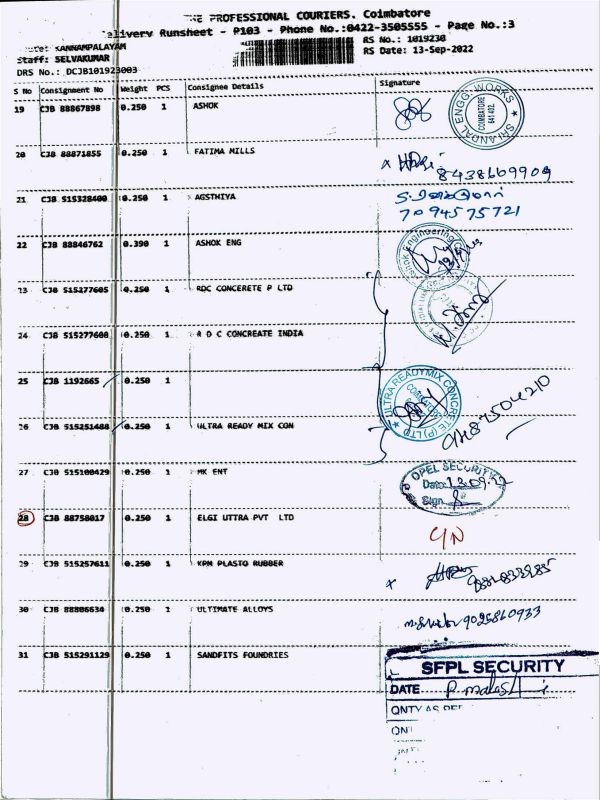 THE PROFESSIONAL COURIERS. Coimbatore
Delivery Runsheet - P103 - Phone No.:0422-3505555 - Page No.:3
Route: KANNAMPALAYAM
RS No.: 1019230
Staff: SELVAKUMAR
RS Date: 13-Sep-2022
DRS No.: DCJB101923003
S No Consignment No Weight PCS Consignee Details Signature
19 CJB 88867898 0.250 1 ASHOK
SRI ANDAL ENGG. WORKS
COIMBATORE
641 402.
20 CJB 88871855 0.250 1 FATIMA MILLS
x
8438669909
21 CJB 515328400 0.250 1 AGSTHIYA
7094575721
22 CJB 88846762 0.390 1 ASHOK ENG
Ashok Engineering
23 CJB 515277605 0.250 1 RDC CONCERETE P LTD
24 CJB 515277600 0.250 1 R D C CONCREATE INDIA
25 CJB 1192665 0.250 1
ULTRA READYMIX CONCRETE (P) LTD
COIMBATORE
26 CJB 515251488 0.250 1 ULTRA READY MIX CON
27 CJB 515100429 0.250 1 MK ENT
OPEL SECURITY
Date: 13.09.22
Sign
28 CJB 88758017 0.250 1 ELGI UTTRA PVT LTD
C/N
29 CJB 515257611 0.250 1 KPM PLASTO RUBBER
x
30 CJB 88806634 0.250 1 ULTIMATE ALLOYS
9025860933
31 CJB 515291129 0.250 1 SANDFITS FOUNDRIES
SFPL SECURITY
DATE
QNTY AS PER
QNT